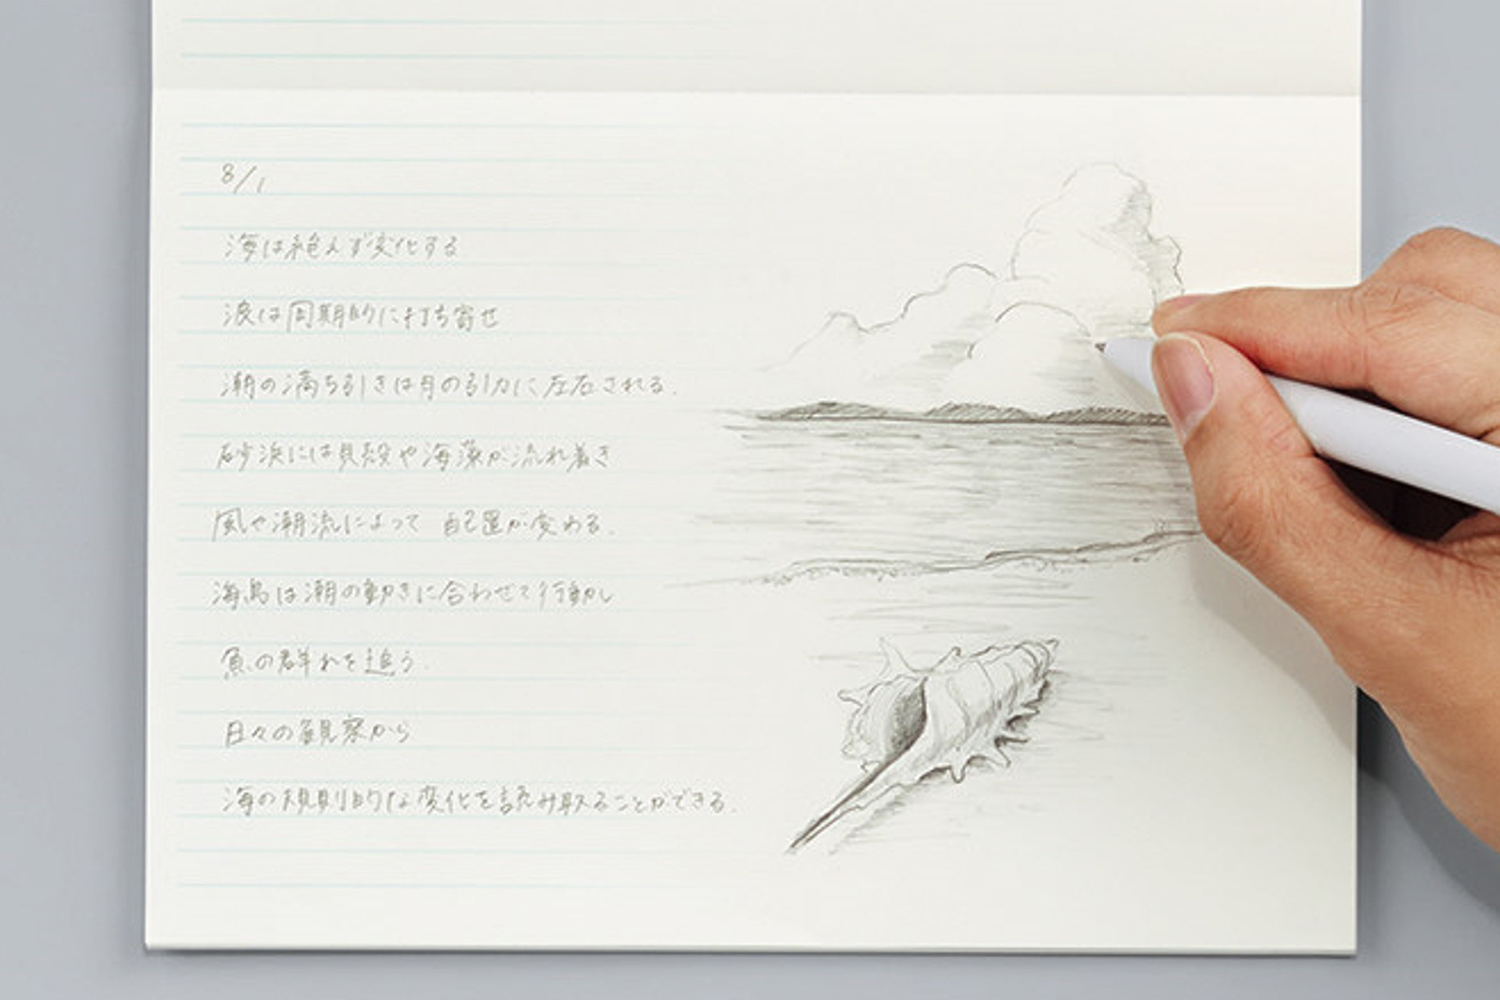 8/1
海は絶えず変化する
浪は周期的に打ち寄せ
潮の満ち引きは月の引力に左右される.
砂浜には貝殻や海藻が流れ着き
風や潮流によって 配置が変わる.
海鳥は潮の動きに合わせて行動し
魚の群れを追う.
日々の観察から
海の規則的な変化を読み取ることができる.